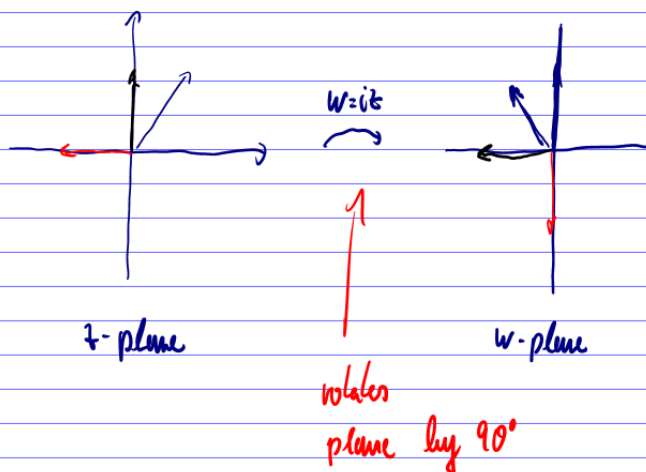 w=iz
z-plane
w-plane
rotates
plane by 90°